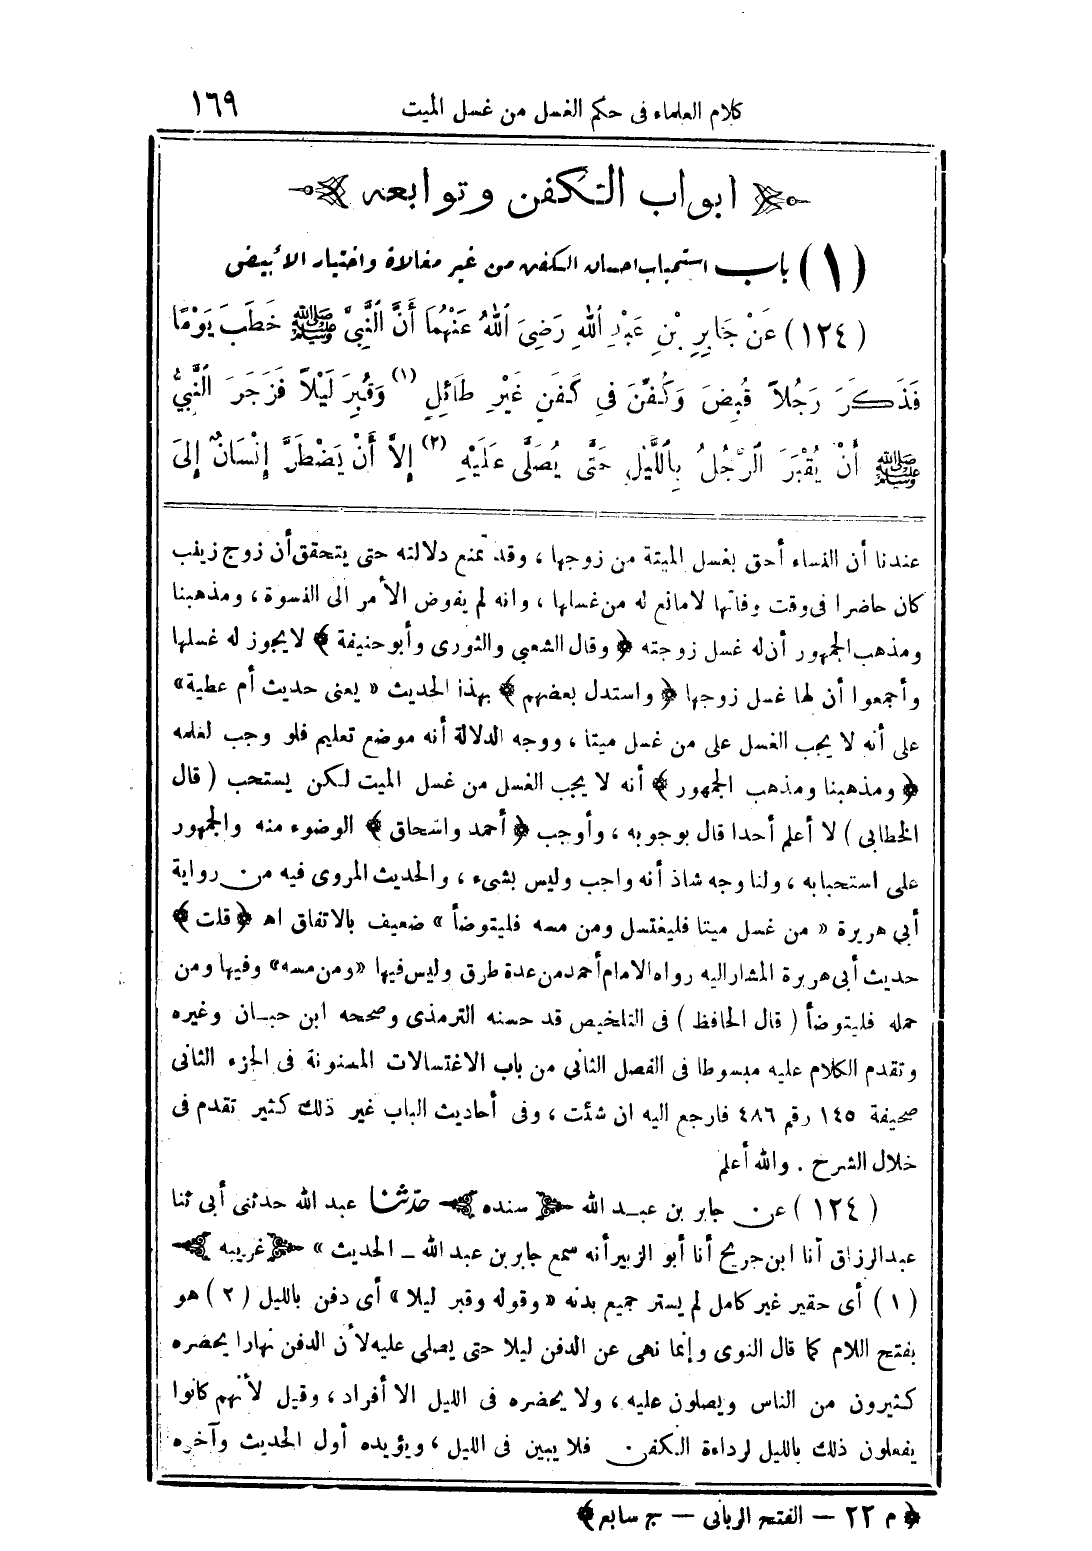 كلام العلماء فى حكم الغسل من غسل الميت ١٦٩
ابواب التكفن وتوابعه
(١) باب استحباب احسان الكفن من غير مغالاة واختيار الأبيض
(١٢٤) عَنْ جَابِرِ بْنِ عَبْدِ اللهِ رَضِىَ اللهُ عَنْهُمَا أَنَّ النَّبِىَّ ﷺ خَطَبَ يَوْمًا
فَذَكَرَ رَجُلاً قُبِضَ وَكُفِّنَ فِى كَفَنٍ غَيْرِ طَائِلٍ (١) وَقُبِرَ لَيْلاً فَزَجَرَ النَّبِىُّ
ﷺ أَنْ يُقْبَرَ الرَّجُلُ بِاللَّيْلِ حَتَّى يُصَلَّى عَلَيْهِ (٢) إِلاَّ أَنْ يَضْطَرَّ إِنْسَانٌ إِلَىَ
عندنا أن النساء أحق بغسل الميتة من زوجها ، وقد تمنع دلالته حتى يتحقق أن زوج زينب
كان حاضرا فى وقت وفاتها لا مانع له من غسلها ، وانه لم يفوض الأمر الى النسوة ، ومذهبنا
ومذهب الجمهور أن له غسل زوجته ﴿ وقال الشعبي والثورى وأبو حنيفة ﴾ لا يجوز له غسلها
وأجمعوا أن لها غسل زوجها ﴿ واستدل بعضهم ﴾ بهذا الحديث « يعنى حديث أم عطية»
على أنه لا يجب الغسل على من غسل ميتا ، ووجه الدلالة أنه موضع تعليم فلو وجب لعلمه
﴿ ومذهبنا ومذهب الجمهور ﴾ أنه لا يجب الغسل من غسل الميت لكن يستحب ( قال
الخطابي ) لا أعلم أحدا قال بوجوبه ، وأوجب ﴿ أحمد واسحاق ﴾ الوضوء منه والجمهور
على استحبابه ، ولنا وجه شاذ أنه واجب وليس بشىء ، والحديث المروى فيه من رواية
أبي هريرة « من غسل ميتا فليغتسل ومن مسه فليتوضأ » ضعيف بالاتفاق اه ﴿ قلت ﴾
حديث أبى هريرة المشار اليه رواه الامام أحمد من عدة طرق وليس فيها «ومن مسه» وفيها ومن
حمله فليتوضأ ( قال الحافظ ) فى التلخيص قد حسنه الترمذى وصححه ابن حبان وغيره
وتقدم الكلام عليه مبسوطا فى الفصل الثانى من باب الاغتسالات المسنونة فى الجزء الثانى
صحيفة ١٤٥ رقم ٤٨٦ فارجع اليه ان شئت ، وفى أحاديث الباب غير ذلك كثير تقدم فى
خلال الشرح . والله أعلم
(١٢٤) عن جابر بن عبد الله سنده حدّثنا عبد الله حدثنى أبى ثنا
عبد الرزاق أنا ابن جريج أنا أبو الزبير أنه سمع جابر بن عبد الله ــ الحديث » غريبه
(١) أى حقير غير كامل لم يستر جميع بدنه « وقوله وقبر ليلا » أى دفن بالليل (٢) هو
بفتح اللام كما قال النووى وإنما نهى عن الدفن ليلا حتى يصلى عليه لأن الدفن نهارا يحضره
كثيرون من الناس ويصلون عليه ، ولا يحضره فى الليل الا أفراد ، وقيل لأنهم كانوا
يفعلون ذلك بالليل لرداءة الكفن فلا يبين فى الليل ، ويؤيده أول الحديث وآخره
﴿ م ٢٢ — الفتح الربانى — ج سابع ﴾